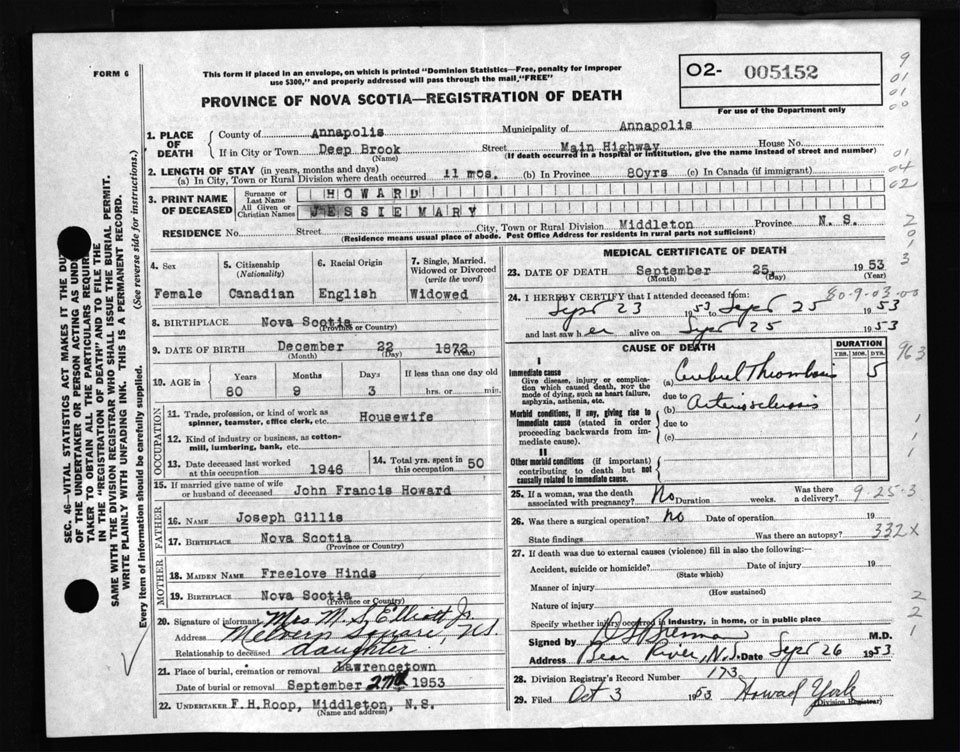 FORM 6
This form if placed in an envelope, on which is printed "Dominion Statistics—Free, penalty for improper
use $300," and properly addressed will pass through the mail, "FREE"
PROVINCE OF NOVA SCOTIA—REGISTRATION OF DEATH
02- 005152
For use of the Department only
9
01
01
00
01
04
02
2
0
1
3
1. PLACE OF DEATH
County of Annapolis Municipality of Annapolis
If in City or Town Deep Brook Street Main Highway House No.
(Name) (If death occurred in a hospital or institution, give the name instead of street and number)
2. LENGTH OF STAY (in years, months and days)
(a) In City, Town or Rural Division where death occurred 11 mos. (b) In Province 80yrs (c) In Canada (if immigrant)
3. PRINT NAME OF DECEASED
Surname or Last Name HOWARD
All Given or Christian Names JESSIE MARY
RESIDENCE No. Street City, Town or Rural Division Middleton Province N. S.
(Residence means usual place of abode. Post Office Address for residents in rural parts not sufficient)
4. Sex
Female
5. Citizenship
(Nationality)
Canadian
6. Racial Origin
English
7. Single, Married,
Widowed or Divorced
(write the word)
Widowed
8. BIRTHPLACE Nova Scotia
(Province or Country)
9. DATE OF BIRTH December 22 1872
(Month) (Day) (Year)
10. AGE in
Years Months Days If less than one day old
80 9 3 hrs. or min.
OCCUPATION
11. Trade, profession, or kind of work as
spinner, teamster, office clerk, etc. Housewife
12. Kind of industry or business, as cotton-
mill, lumbering, bank, etc.
13. Date deceased last worked
at this occupation 1946
14. Total yrs. spent in
this occupation 50
15. If married give name of wife
or husband of deceased John Francis Howard
FATHER
16. NAME Joseph Gillis
17. BIRTHPLACE Nova Scotia
(Province or Country)
MOTHER
18. MAIDEN NAME Freelove Hinds
19. BIRTHPLACE Nova Scotia
(Province or Country)
20. Signature of informant Mrs M. S. Elliott Jr.
Address Melvern Square, N.S.
Relationship to deceased daughter
21. Place of burial, cremation or removal Lawrencetown
Date of burial or removal September 27th 1953
22. UNDERTAKER F.H.Roop, Middleton, N.S.
(Name and address)
MEDICAL CERTIFICATE OF DEATH
23. DATE OF DEATH September 25 1953
(Month) (Day)
24. I HEREBY CERTIFY that I attended deceased from: 80-9-03-00
Sept 23 1953 to Sept 25 1953
and last saw her alive on Sept 25 1953
CAUSE OF DEATH
DURATION
YRS. MOS. DYS.
963
I
Immediate cause
Give disease, injury or complica-
tion which caused death, NOT the
mode of dying, such as heart failure,
asphyxia, asthenia, etc.
(a) Cerebral Thrombosis 5
due to
Morbid conditions, if any, giving rise to
immediate cause (stated in order
proceeding backwards from im-
mediate cause).
(b) Arteriosclerosis
due to
(c)
1
1
1
II
Other morbid conditions (if important)
contributing to death but not
causally related to immediate cause.
25. If a woman, was the death
associated with pregnancy? No Duration weeks. Was there
a delivery? 9-25-3
26. Was there a surgical operation? No Date of operation 19
State findings Was there an autopsy? 332X
27. If death was due to external causes (violence) fill in also the following:—
Accident, suicide or homicide? Date of injury 19
(State which)
Manner of injury
(How sustained)
Nature of injury
Specify whether injury occurred in industry, in home, or in public place
2
2
1
Signed by Brennan M.D.
Address Bear River, N.S. Date Sept 26 1953
28. Division Registrar's Record Number 173
29. Filed Oct 3 1953 Howard York
(Division Registrar)
SEC. 46—VITAL STATISTICS ACT MAKES IT THE DU
OF THE UNDERTAKER OR PERSON ACTING AS UND
TAKER TO OBTAIN ALL THE PARTICULARS REQUIR
IN THE "REGISTRATION OF DEATH" AND TO FILE THE
SAME WITH THE DIVISION REGISTRAR WHO SHALL ISSUE THE BURIAL PERMIT.
WRITE PLAINLY WITH UNFADING INK. THIS IS A PERMANENT RECORD.
Every item of information should be carefully supplied. (See reverse side for instructions.)